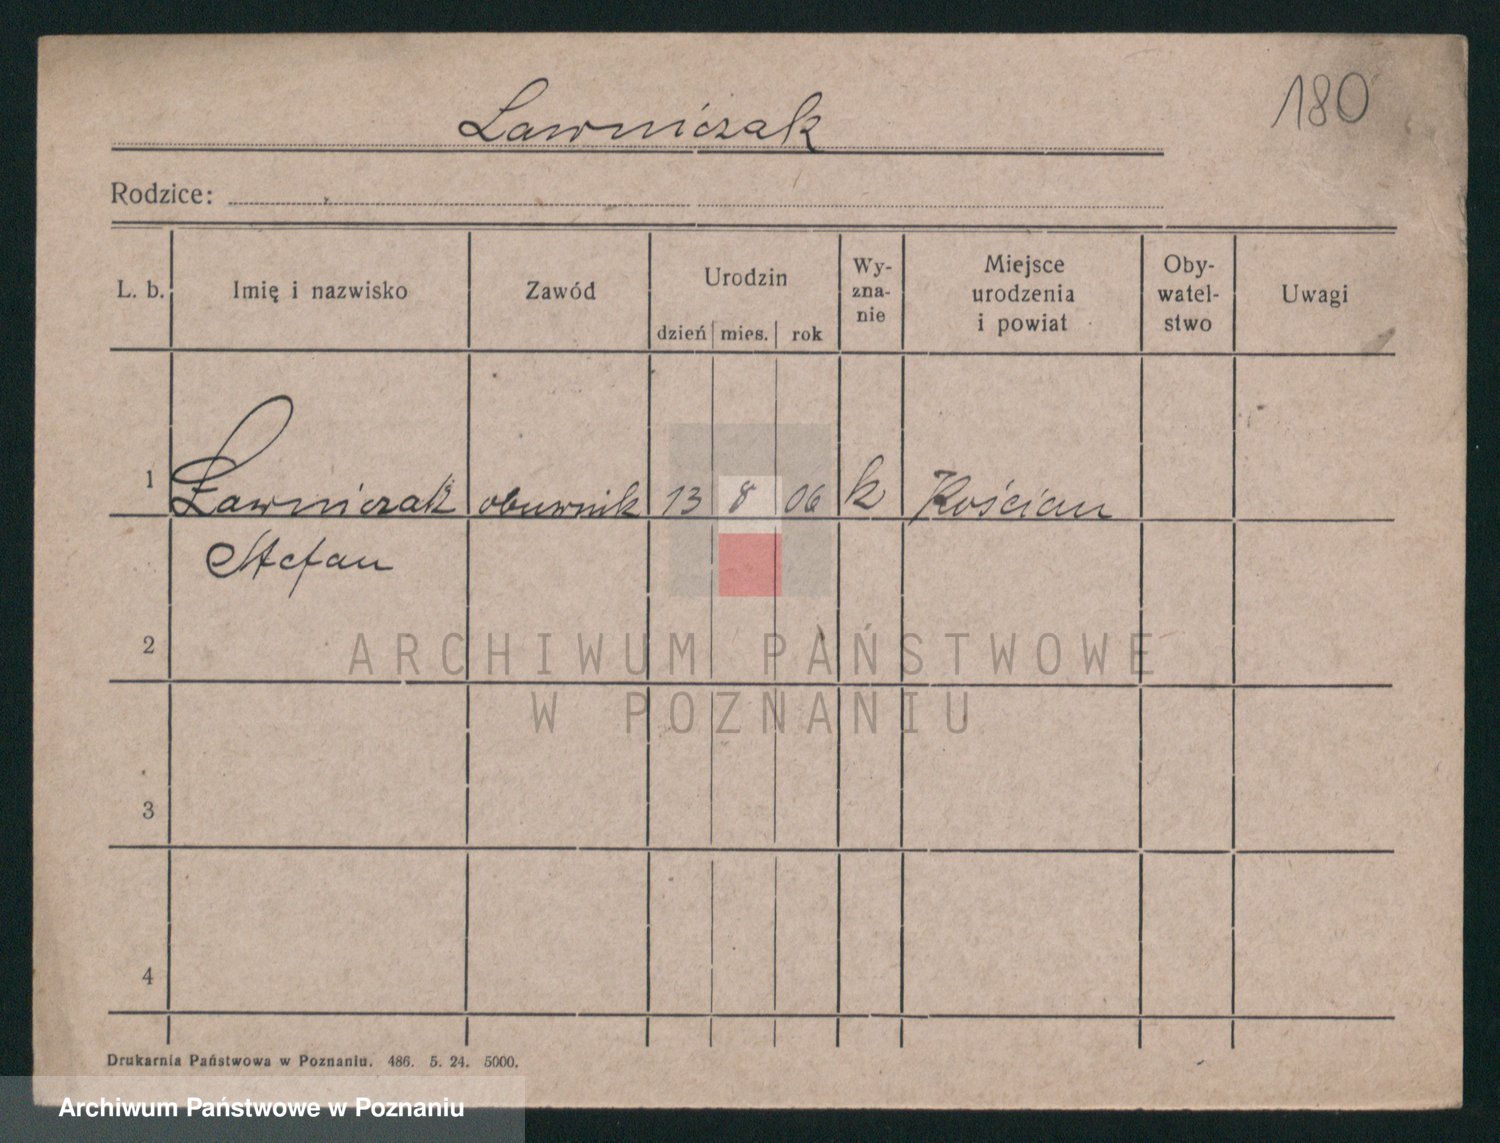 180
Ławniczak
Rodzice:
L. b.
Imię i nazwisko
Zawód
Urodzin
dzień mies. rok
Wy-
zna-
nie
Miejsce
urodzenia
i powiat
Oby-
watel-
stwo
Uwagi
1 Ławniczak obuwnik 13 8 06 k Kościan
Stefan
2
ARCHIWUM PAŃSTWOWE
W POZNANIU
3
4
Drukarnia Państwowa w Poznaniu. 486. 5. 24. 5000.
Archiwum Państwowe w Poznaniu